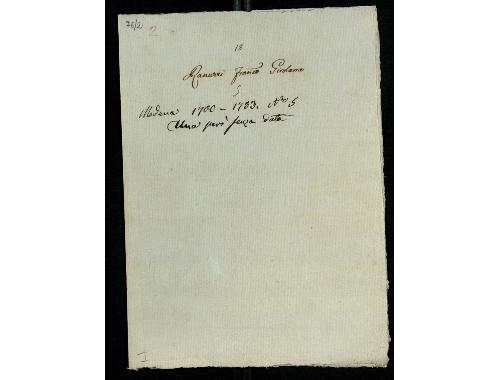 76/2 2
18
Ranuzzi Franco Girolamo
5
Modena 1700 - 1733. No 5
Una però senza data
I